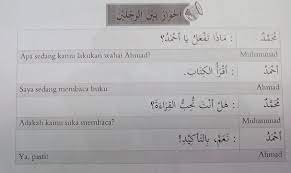 الحوار بين الرجلين
مُحَمَّدٌ : مَاذَا تَفْعَلُ يَا أَحْمَدُ؟
Muhammad Apa sedang kamu lakukan wahai Ahmad?
أَحْمَدُ : أَقْرَأُ الْكِتَابَ.
Ahmad Saya sedang membaca buku
مُحَمَّدٌ : هَلْ أَنْتَ تُحِبُّ الْقِرَاءَةَ؟
Muhammad Adakah kamu suka membaca?
أَحْمَدُ : نَعَمْ، بِالتَّأْكِيْدِ!
Ahmad Ya, pasti!